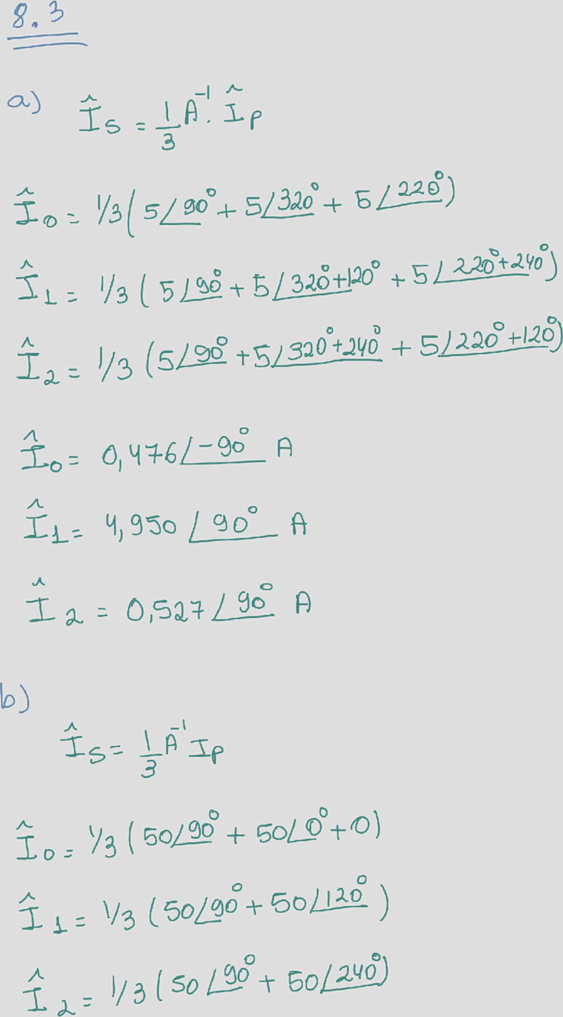 8.3
a) Î_S = 1/3 A⁻¹. Î_P
Î_0 = 1/3 (5∠90° + 5∠320° + 5∠220°)
Î_1 = 1/3 (5∠90° + 5∠320°+120° + 5∠220°+240°)
Î_2 = 1/3 (5∠90° + 5∠320°+240° + 5∠220°+120°)
Î_0 = 0,476∠-90° A
Î_1 = 4,950∠90° A
Î_2 = 0,527∠90° A
b)
Î_S = 1/3 A⁻¹ I_P
Î_0 = 1/3 (50∠90° + 50∠0° + 0)
Î_1 = 1/3 (50∠90° + 50∠120°)
Î_2 = 1/3 (50∠90° + 50∠240°)